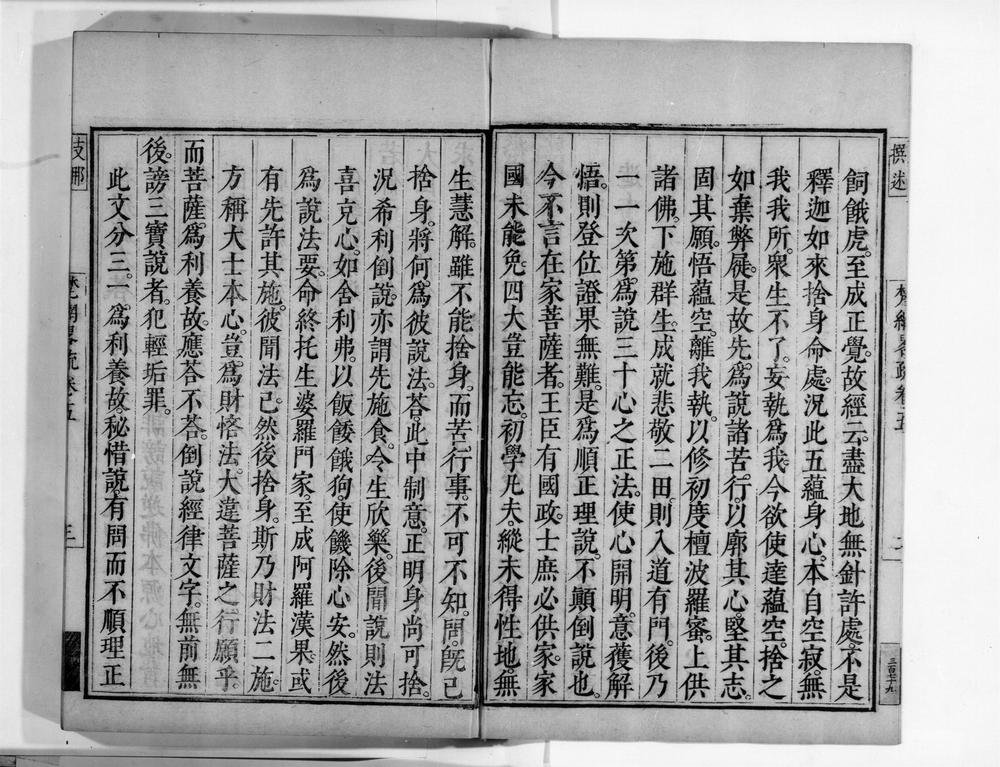 撰述
梵網畧疏卷五
二
三百七十九
飼餓虎。至成正覺。故經云。盡大地無針許處。不是
釋迦如來捨身命處。況此五蘊身心。本自空寂。無
我我所。衆生不了。妄執爲我。今欲使達蘊空。捨之
如棄弊屣。是故先爲說諸苦行。以廓其心。堅其志。
固其願。悟蘊空。離我執。以修初度檀波羅蜜。上供
諸佛。下施群生。成就悲敬二田。則入道有門。後乃
一一次第。爲說三十心之正法。使心開明。意獲解
悟。則登位證果無難。是爲順正理說。不顛倒說也。
今不言在家菩薩者。王臣有國政。士庶必供家。家
國未能免。四大豈能忘。初學凡夫。縱未得性地。無
生慧解。雖不能捨身。而苦行事。不可不知。問。既已
捨身。將何爲彼說法。荅。此中制意。正明身尚可捨。
況希利倒說。亦謂先施食。令生欣樂。後聞說則法
喜克心。如舍利弗。以飯餧餓狗。使饑除心安。然後
爲說法要。命終托生婆羅門家。至成阿羅漢果。或
有先許其施。彼聞法已。然後捨身。斯乃財法二施。
方稱大士本心。豈爲財悋法。大違菩薩之行願乎。
而菩薩。爲利養故。應荅不荅。倒說經律文字。無前無
後。謗三寶說者。犯輕垢罪。
此文分三。一。爲利養故。秘惜說。有問而不順理正
支那
梵網畧疏卷五
三